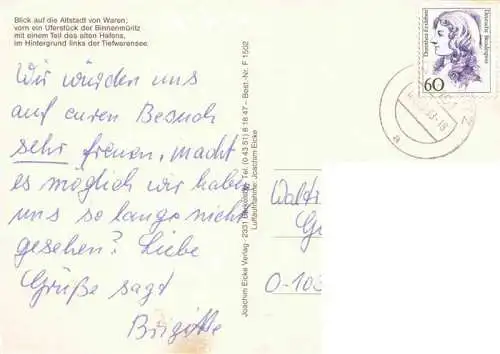 Blick auf die Altstadt von Waren;
vorn ein Uferstück der Binnenmüritz
mit einem Teil des alten Hafens,
im Hintergrund links der Tiefwarensee.
Wir würden uns
auf euren Besuch
sehr freuen. Macht
es möglich wir haben
uns so lange nicht
gesehen? Liebe
Grüße sagt
Brigitte
Joachim Eicke Verlag - 2331 Tel. (0 43 51) 8 18 47 - Best.-Nr. F 1502
Luftaufnahme: Joachim Eicke
Dorothea Erxleben
Deutsche Bundespost
60
a
O-103